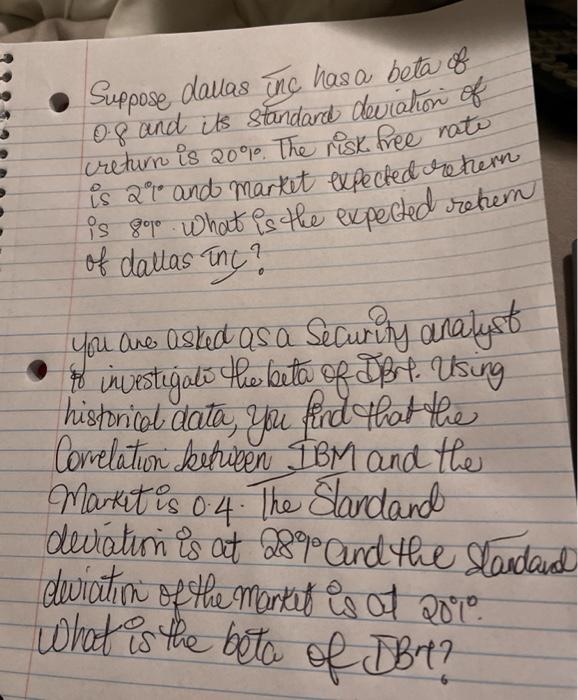 Suppose dallas Inc has a beta of
0.8 and its standard deviation of
return is 20%. The risk free rate
is 2% and market expected return
is 8%. What is the expected return
of dallas Inc?
You are asked as a Security analyst
to investigate the beta of IBM. Using
historical data, you find that the
Correlation between IBM and the
Market is 0.4. The Standard
deviation is at 28% and the standard
deviation of the market is at 20%.
What is the beta of IBM?